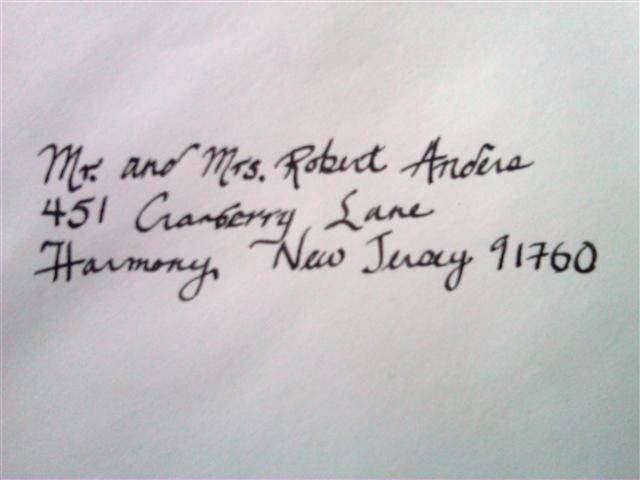 Mr. and Mrs. Robert Anders
451 Cranberry Lane
Harmony, New Jersey 91760